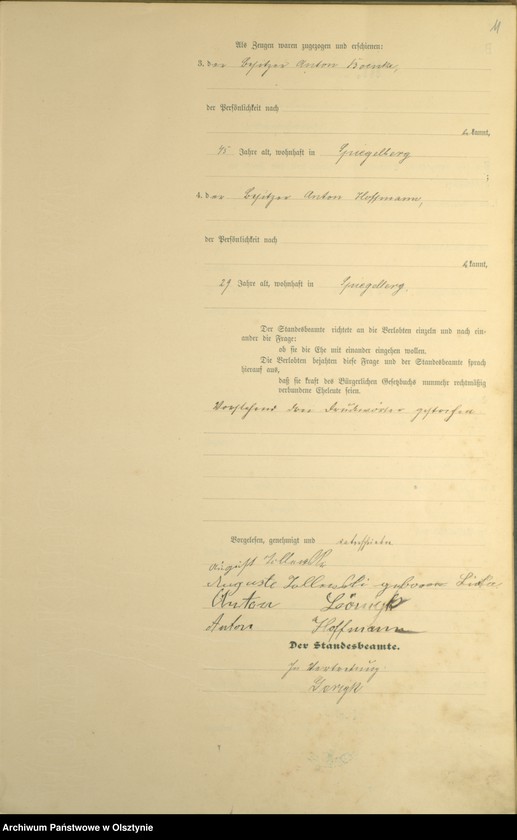 11
Als Zeugen waren zugezogen und erschienen:
3. der Besitzer Anton
der Persönlichkeit nach
kannt,
45 Jahre alt, wohnhaft in Spiegelberg
;
4. der Besitzer Anton Hoffmann,
der Persönlichkeit nach
kannt,
29 Jahre alt, wohnhaft in Spiegelberg.
Der Standesbeamte richtete an die Verlobten einzeln und nach ein-
ander die Frage:
ob sie die Ehe mit einander eingehen wollen.
Die Verlobten bejahten diese Frage und der Standesbeamte sprach
hierauf aus,
daß sie kraft des Bürgerlichen Gesetzbuchs nunmehr rechtmäßig
verbundene Eheleute seien.
Vorstehend drei Druckwörter gestrichen
Vorgelesen, genehmigt und unterschrieben
August
Auguste geboren
Anton
Anton Hoffmann
Der Standesbeamte.
In Vertretung
Archiwum Państwowe w Olsztynie